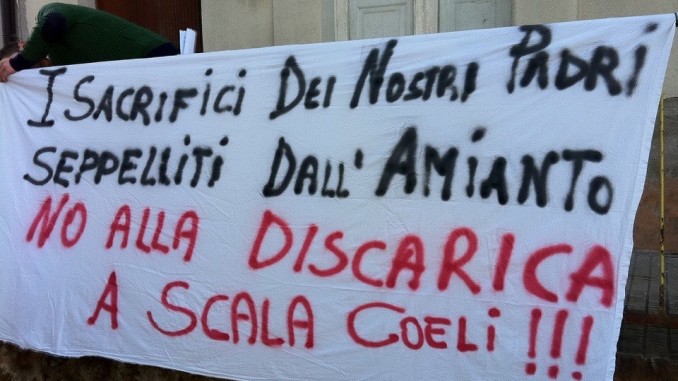 I SACRIFICI DEI NOSTRI PADRI
SEPPELLITI DALL'AMIANTO
NO ALLA DISCARICA
A SCALA COELI!!!